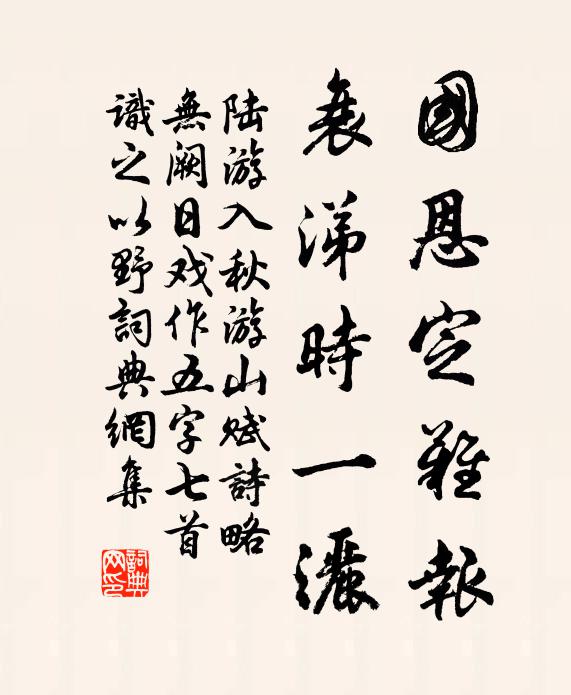 國恩定難報
衰涕時一灑
陸游入秋游山賦詩略
無闕日戏作五字七首
識之以野詞典網集
詞典網印